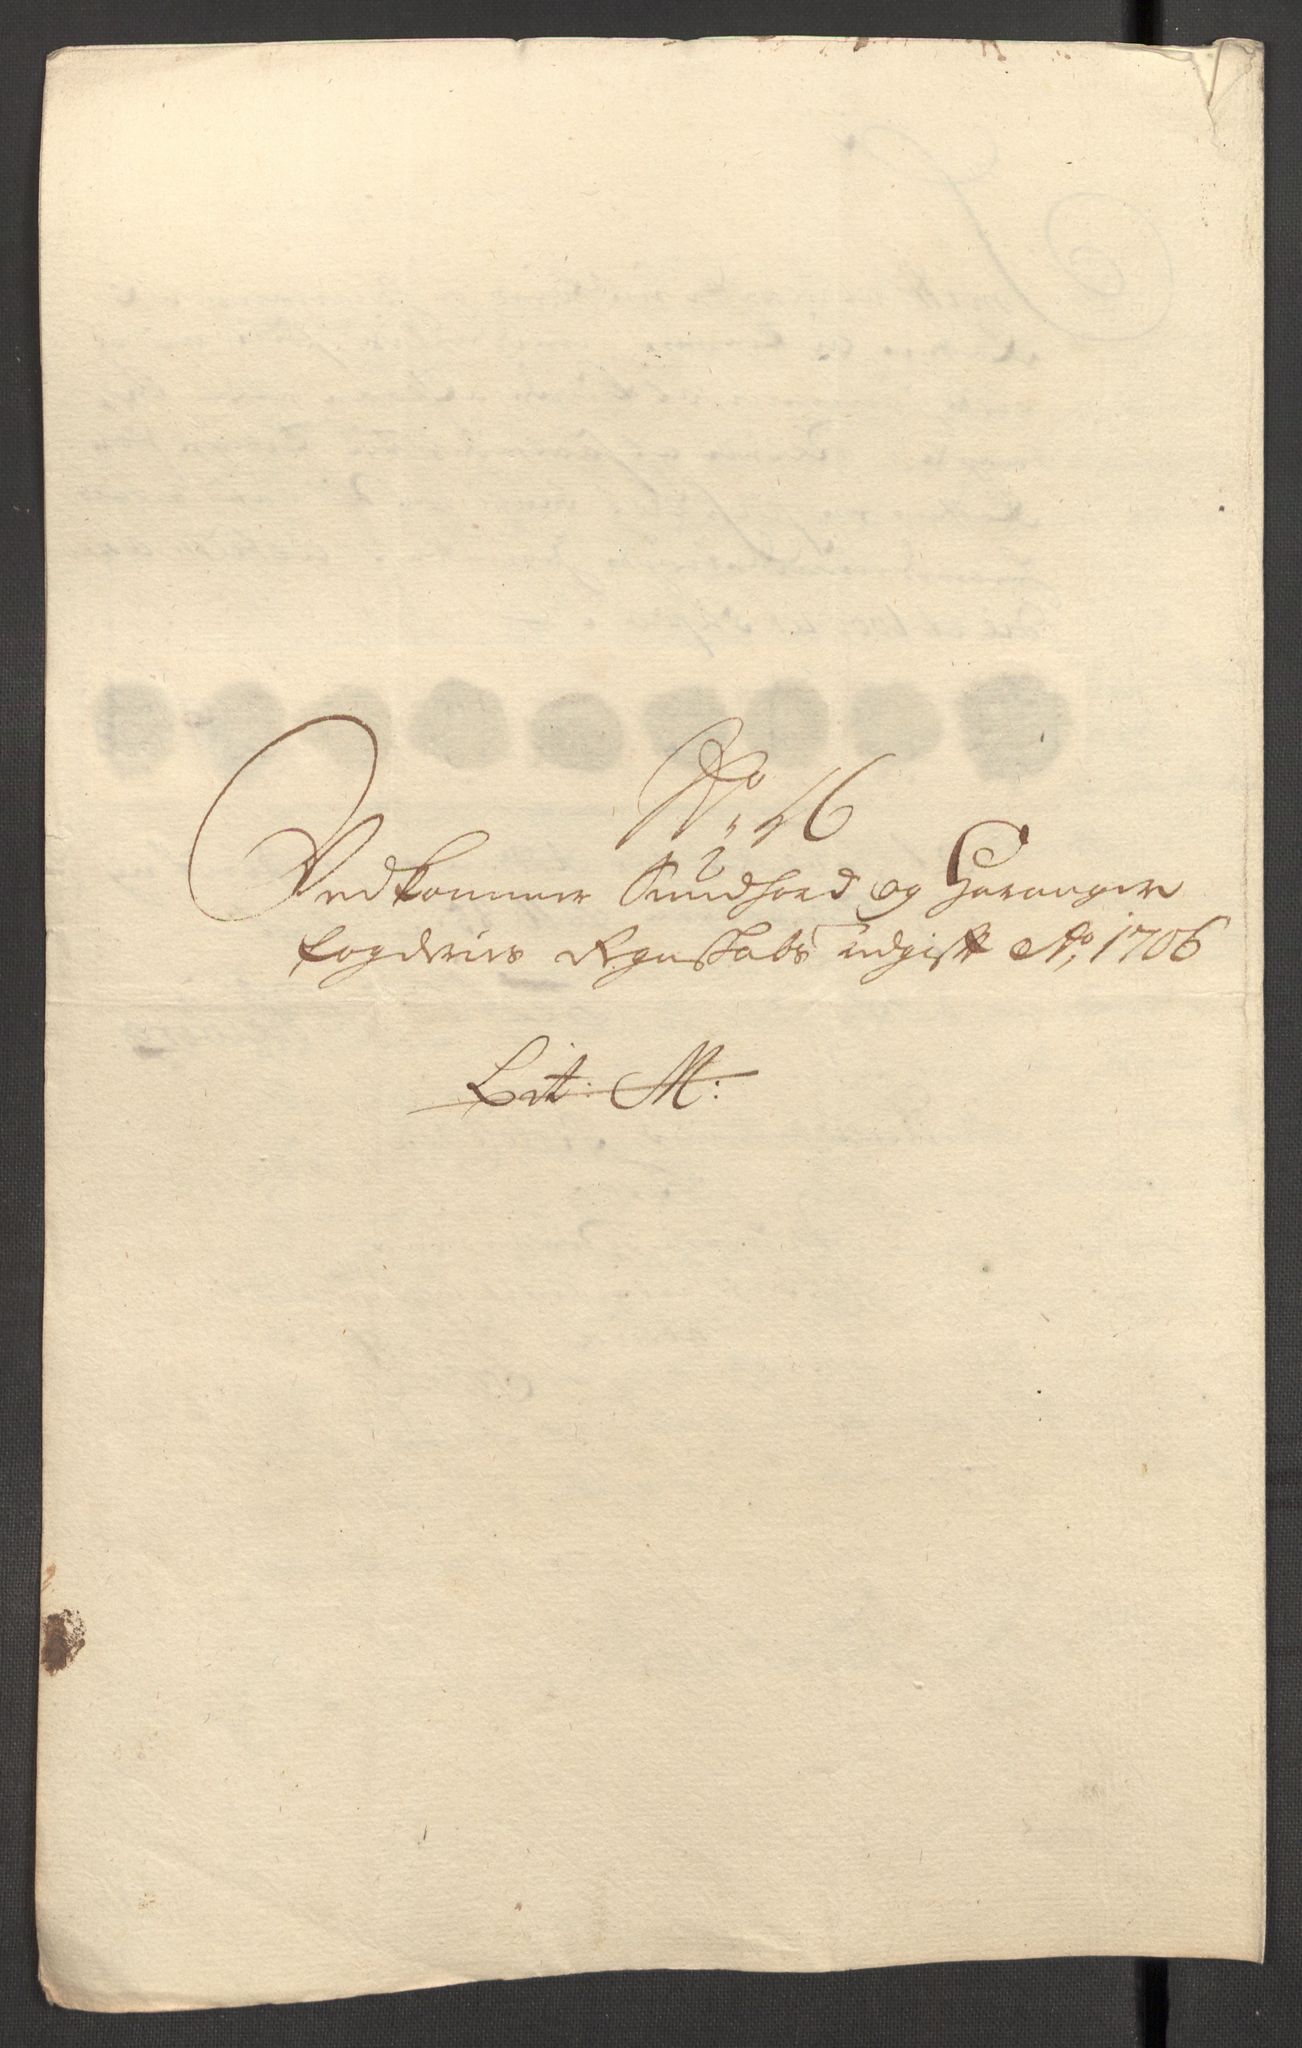 No. 16
Vedkommer Sundhord og Haranger
fogderies Regnskabs udgift Ao, 1706
Lit: M: